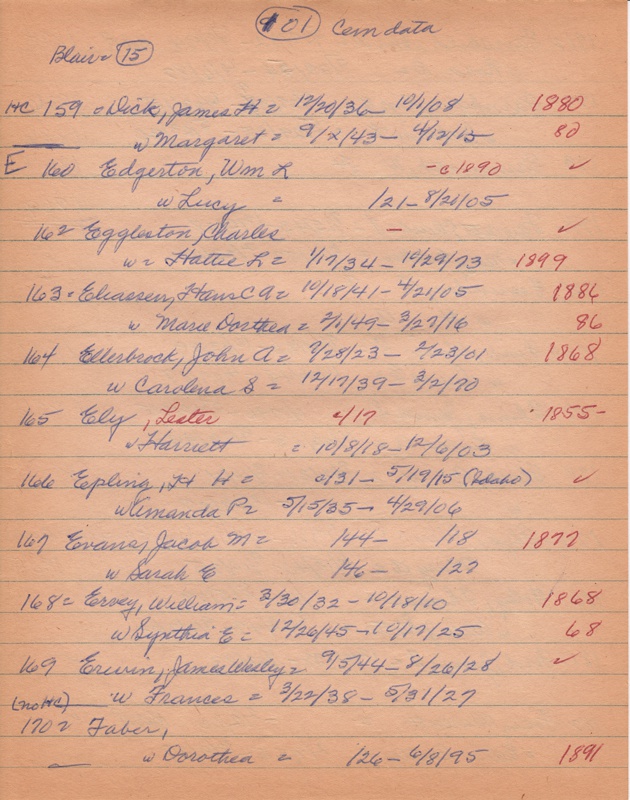 901 Cem data
Blair = 15
HC 159 = Dick, James H = 12/20/36 - 10/1/08 1880
w Margaret = 9/x/43 - 4/12/15 80
E 160 Edgerton, Wm L - c 1890 ✓
w Lucy = /21 - 8/20/05
162 Eggleston, Charles - ✓
w = Hattie L = 1/17/34 - 10/29/73 1899
163 = Eliaesen, Hans C A = 10/18/41 - 4/21/05 1886
w Marie Dorthea = 2/1/49 - 3/27/16 86
164 Ellerbrock, John A = 7/28/23 - 2/23/01 1868
w Carolena S = 12/17/39 - 3/2/70
165 Ely, Lester 4/17 1855 -
w Harriett = 10/8/18 - 12/6/03
166 Epling, H H = 0/31 - 5/19/15 (Idaho) ✓
w Amanda P = 5/15/35 - 4/29/06
167 Evans, Jacob M = /44 - /18 1877
w Sarah E /46 - /27
168 = Ervey, William = 3/30/32 - 10/18/10 1868
w Synthia E = 12/26/45 - 10/17/25 68
169 Erwin, James Wesley = 9/5/44 - 8/26/28 ✓
(no HC) w Frances = 3/22/38 - 5/31/27
170 = Faber,
w Dorothea = /26 - 6/8/95 1891